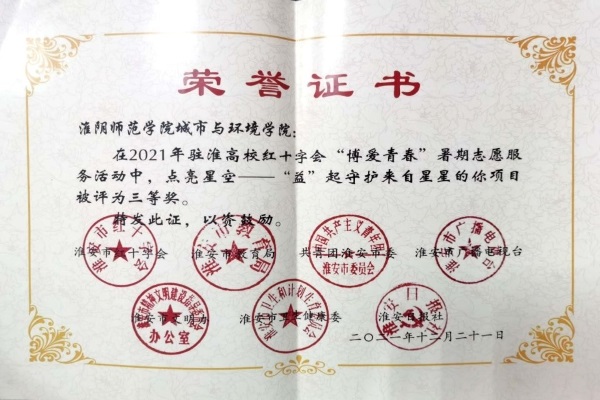 荣誉证书
淮阴师范学院城市与环境学院：
在2021年驻淮高校红十字会“博爱青春”暑期志愿服
务活动中，点亮星空——“益”起守护来自星星的你项目
被评为三等奖。
特发此证，以资鼓励。
淮安市红十字会 淮安市教育局 共青团淮安市委 淮安市广播电视台
淮安市文明办 淮安市卫生健康委 淮安日报社
二〇二一年十二月二十一日
淮安市红十字会
淮安市教育局
中国共产主义青年团
淮安市委员会
淮安市广播电视台
办公室
淮安日报社